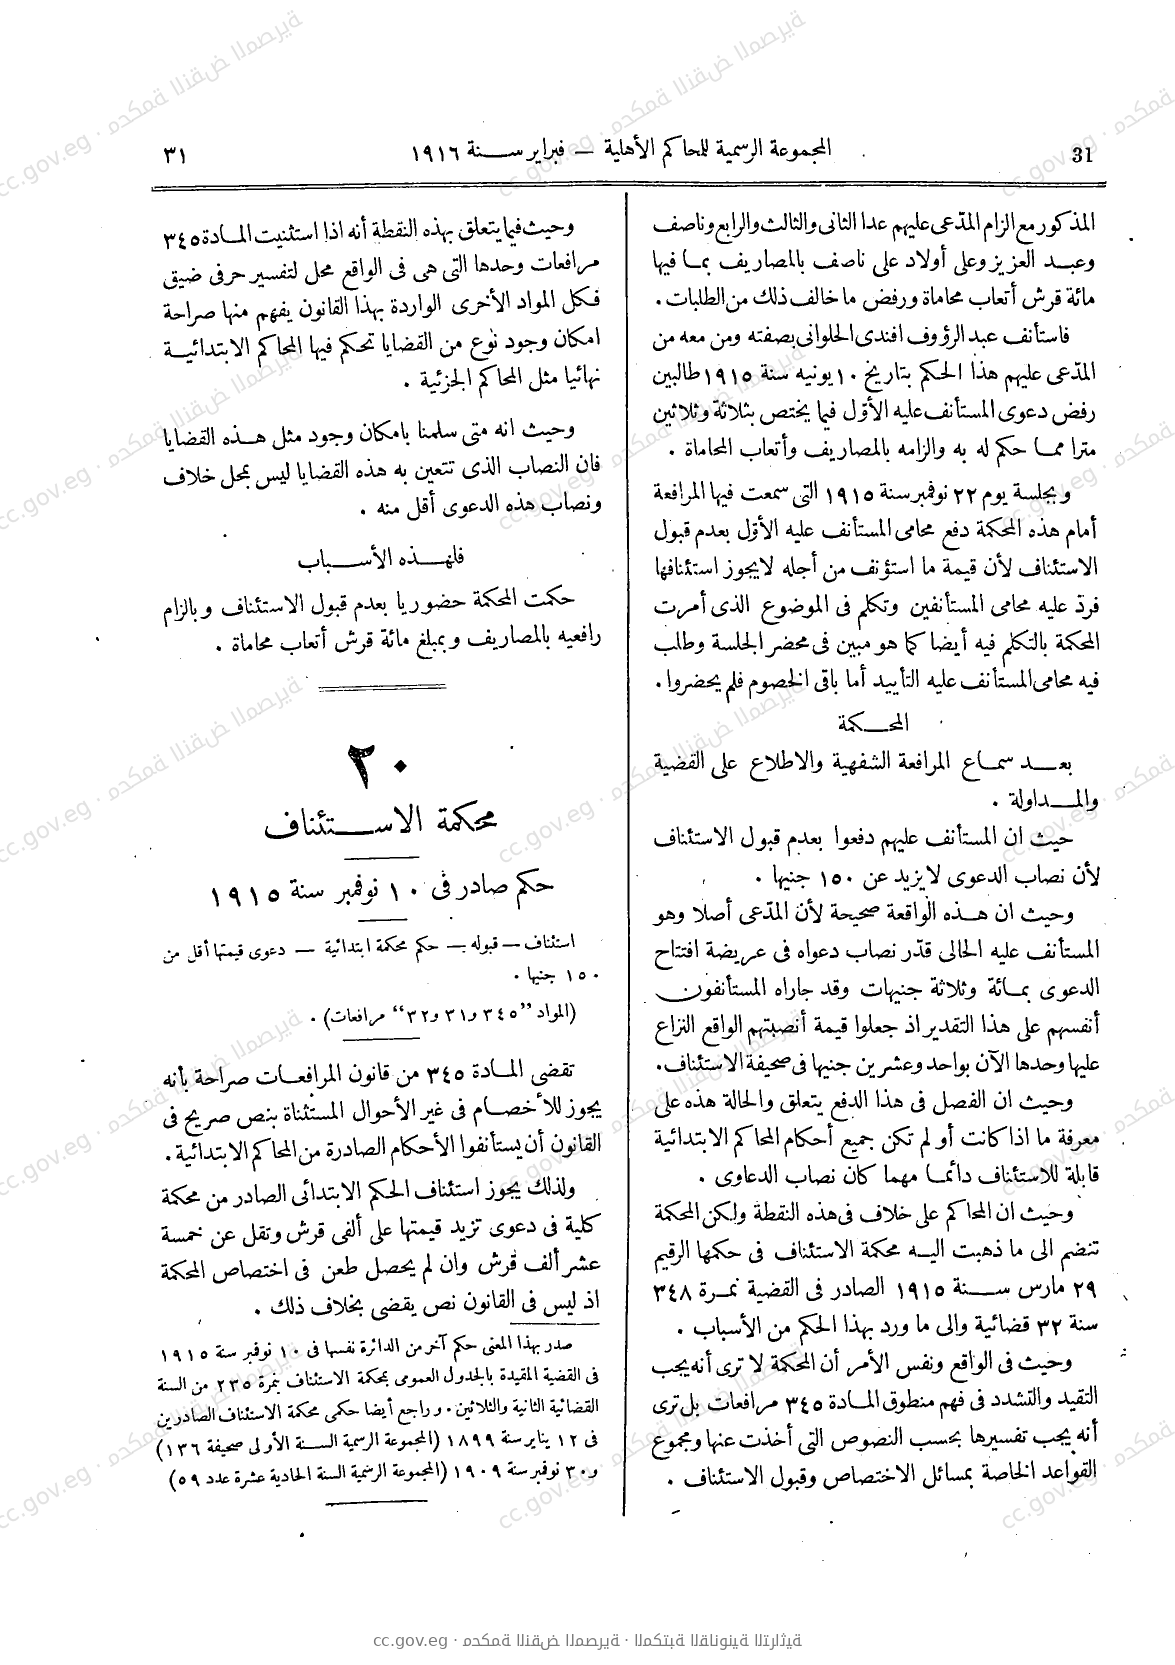 31
المجموعة الرسمية للمحاكم الأهلية — فبراير سنة ١٩١٦
٣١
المذكور مع الزام المدّعى عليهم عدا الثانى والثالث والرابع وناصف
وعبد العزيز وعلى أولاد على ناصف بالمصاريف بما فيها
مائة قرش أتعاب محاماة ورفض ما خالف ذلك من الطلبات .
فاستأنف عبد الرؤوف افندى الحلوانى بصفته ومن معه من
المدّعى عليهم هذا الحكم بتاريخ ١٠ يونيه سنة ١٩١٥ طالبين
رفض دعوى المستأنف عليه الأوّل فيما يختص بثلاثة وثلاثين
مترا مما حكم له به والزامه بالمصاريف وأتعاب المحاماة .
وبجلسة يوم ٢٢ نوفمبر سنة ١٩١٥ التى سمعت فيها المرافعة
أمام هذه المحكمة دفع محامى المستأنف عليه الأوّل بعدم قبول
الاستئناف لأن قيمة ما استؤنف من أجله لايجوز استئنافها
فردّ عليه محامى المستأنفين وتكلم فى الموضوع الذى أمرت
المحكمة بالتكلم فيه أيضا كما هو مبين فى محضر الجلسة وطلب
فيه محامى المستأنف عليه التأييد أما باقى الخصوم فلم يحضروا .
المحكمة
بعد سماع المرافعة الشفهية والاطلاع على القضية
والمداولة .
حيث ان المستأنف عليهم دفعوا بعدم قبول الاستئناف
لأن نصاب الدعوى لا يزيد عن ١٥٠ جنيها .
وحيث ان هذه الواقعة صحيحة لأن المدّعى أصلا وهو
المستأنف عليه الحالى قدّر نصاب دعواه فى عريضة افتتاح
الدعوى بمائة وثلاثة جنيهات وقد جاراه المستأنفون
أنفسهم على هذا التقدير اذ جعلوا قيمة أنصبتهم الواقع النزاع
عليها وحدها الآن بواحد وعشرين جنيها فى صحيفة الاستئناف .
وحيث ان الفصل فى هذا الدفع يتعلق والحالة هذه على
معرفة ما اذا كانت أو لم تكن جميع أحكام المحاكم الابتدائية
قابلة للاستئناف دائما مهما كان نصاب الدعاوى .
وحيث ان المحاكم على خلاف فى هذه النقطة ولكن المحكمة
تنضم الى ما ذهبت اليه محكمة الاستئناف فى حكمها الرقيم
٢٩ مارس سنة ١٩١٥ الصادر فى القضية نمرة ٣٤٨
سنة ٣٢ قضائية والى ما ورد بهذا الحكم من الأسباب .
وحيث فى الواقع ونفس الأمر أن المحكمة لا ترى أنه يجب
التقيد والتشدد فى فهم منطوق المادة ٣٤٥ مرافعات بل ترى
أنه يجب تفسيرها بحسب النصوص التى أخذت عنها ومجموع
القواعد الخاصة بمسائل الاختصاص وقبول الاستئناف .
وحيث فيما يتعلق بهذه النقطة أنه اذا استثنيت المادة ٣٤٥
مرافعات وحدها التى هى فى الواقع محل لتفسير حرفى ضيق
فكل المواد الأخرى الواردة بهذا القانون يفهم منها صراحة
امكان وجود نوع من القضايا تحكم فيها المحاكم الابتدائية
نهائيا مثل المحاكم الجزئية .
وحيث انه متى سلمنا بامكان وجود مثل هذه القضايا
فان النصاب الذى تتعين به هذه القضايا ليس بمحل خلاف
ونصاب هذه الدعوى أقل منه .
فلهذه الأسباب
حكمت المحكمة حضوريا بعدم قبول الاستئناف وبالزام
رافعيه بالمصاريف وبمبلغ مائة قرش أتعاب محاماة .
٢٠
محكمة الاستئناف
حكم صادر فى ١٠ نوفمبر سنة ١٩١٥
استئناف — قبوله — حكم محكمة ابتدائية — دعوى قيمتها أقل من
١٥٠ جنيها .
(المواد "٣٤٥ و٣١ و٣٢" مرافعات) .
تقضى المادة ٣٤٥ من قانون المرافعات صراحة بأنه
يجوز للأخصام فى غير الأحوال المستثناة بنص صريح فى
القانون أن يستأنفوا الأحكام الصادرة من المحاكم الابتدائية .
ولذلك يجوز استئناف الحكم الابتدائى الصادر من محكمة
كلية فى دعوى تزيد قيمتها على ألفى قرش وتقل عن خمسة
عشر ألف قرش وان لم يحصل طعن فى اختصاص المحكمة
اذ ليس فى القانون نص يقضى بخلاف ذلك .
صدر بهذا المعنى حكم آخر من الدائرة نفسها فى ١٠ نوفمبر سنة ١٩١٥
فى القضية المقيدة بالجدول العمومى بمحكمة الاستئناف بنمرة ٢٣٥ من السنة
القضائية الثانية والثلاثين . وراجع أيضا حكمى محكمة الاستئناف الصادرين
فى ١٢ يناير سنة ١٨٩٩ (المجموعة الرسمية السنة الأولى صحيفة ١٣٦)
و٣٠ نوفمبر سنة ١٩٠٩ (المجموعة الرسمية السنة الحادية عشرة عدد ٥٩)
cc.gov.eg · محكمة النقض المصرية · المكتبة القانونية التراثية